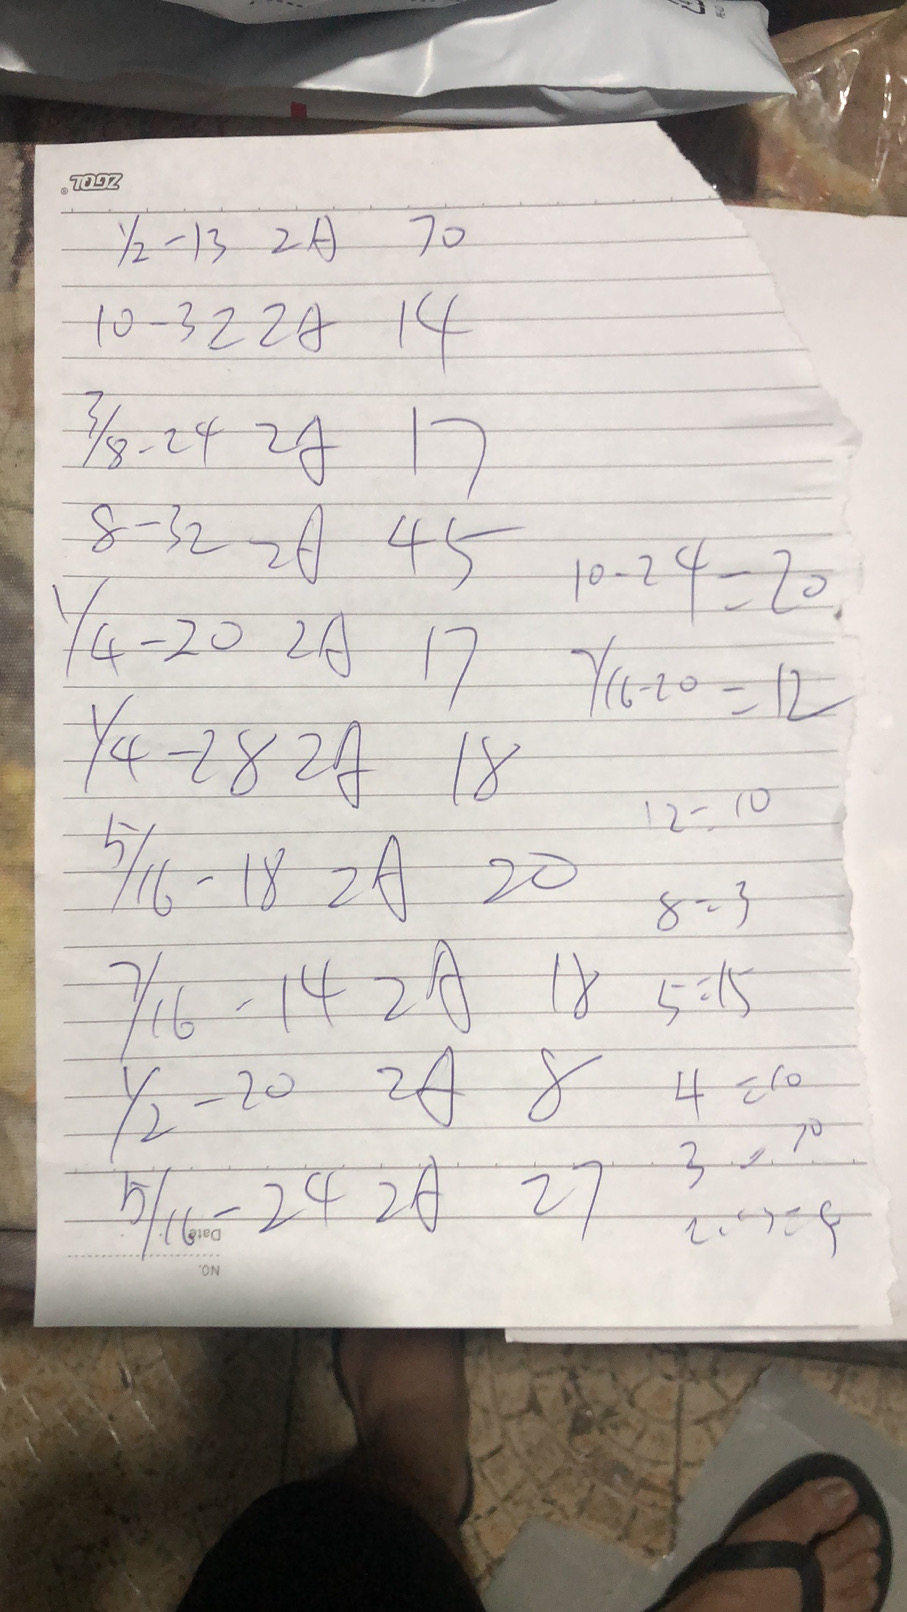 TOLDZ
1/2-13 2A 70
10-32 2A 14
3/8-24 2A 17
8-32 2A 45
10-24=20
1/4-20 2A 17
7/16-20=12
1/4-28 2A 18
12=10
5/16-18 2A 20
8=3
7/16-14 2A 18
5=15
1/2-20 2A 8
4=10
3=
5/16-24 2A 27
Date
NO.